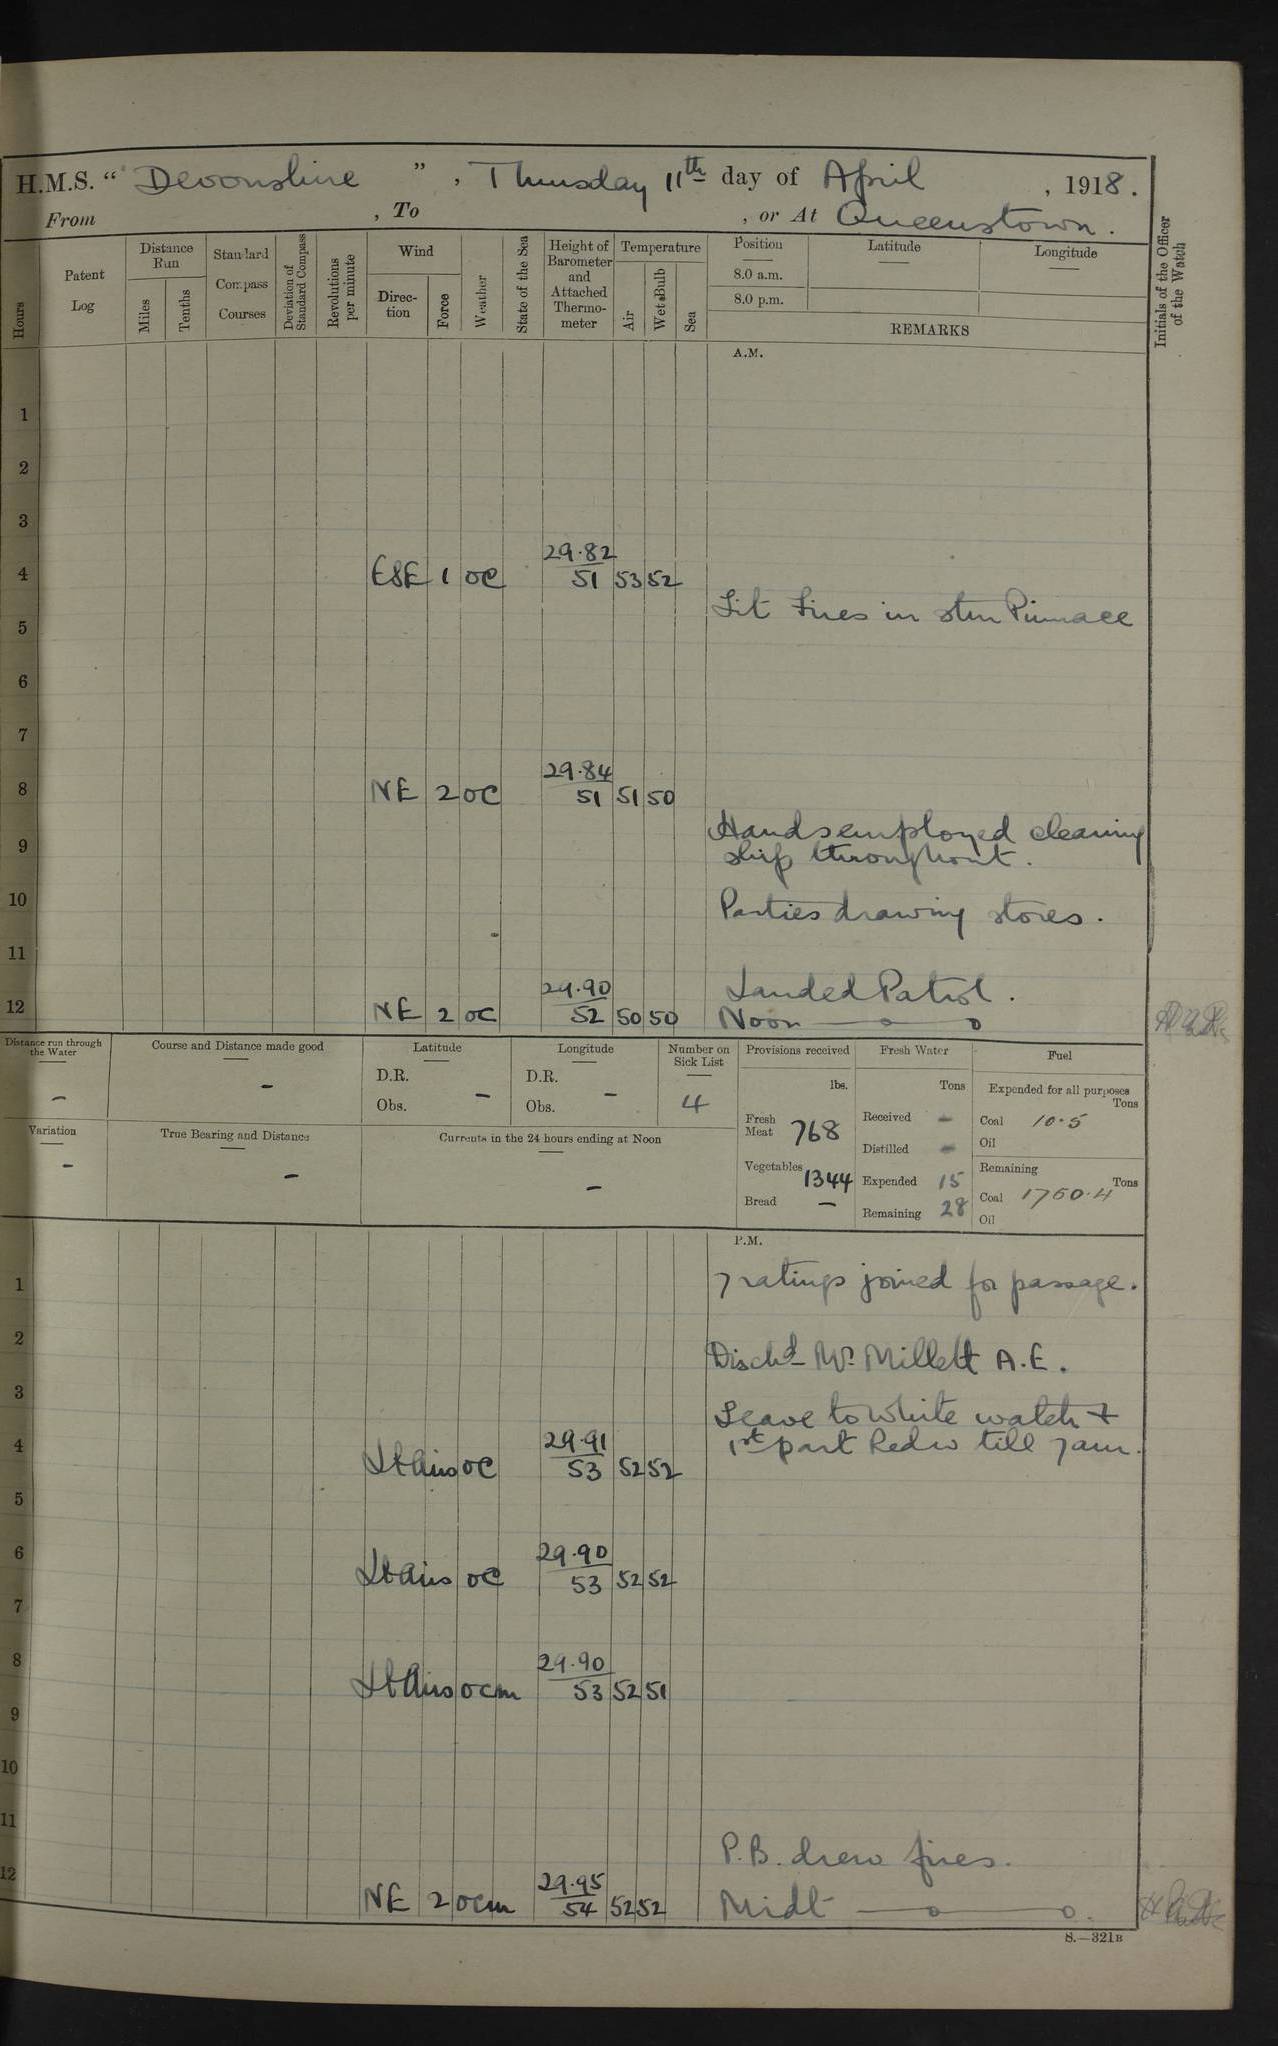 H.M.S. “ Devonshire ” , Thursday 11th day of April , 1918.
From , To , or At Queenstown.
Hours
Patent Log
Distance Run
Miles
Tenths
Standard Compass Courses
Deviation of Standard Compass
Revolutions per minute
Wind
Direc-tion
Force
Weather
State of the Sea
Height of Barometer and Attached Thermo-meter
Temperature
Air
Wet Bulb
Sea
Position
8.0 a.m.
8.0 p.m.
Latitude
Longitude
REMARKS
Initials of the Officer of the Watch
A.M.
1
2
3
29.82
4 ESE 1 oc 51 53 52
Lit Fires in stm Pinnace
5
6
7
29.84
8 NE 2 oc 51 51 50
Hands employed cleaning
9 ship throughout.
10 Parties drawing stores.
11
29.90 Landed Patrol.
12 NE 2 oc 52 50 50 Noon
Distance run through the Water
-
Course and Distance made good
-
Latitude
D.R.
Obs. -
Longitude
D.R.
Obs. -
Number on Sick List
4
Provisions received
lbs.
Fresh Meat 768
Vegetables 1344
Bread -
Fresh Water
Tons
Received -
Distilled -
Expended 15
Remaining 28
Fuel
Expended for all purposes
Tons
Coal 10.5
Oil
Remaining
Tons
Coal 1760.4
Oil
Variation
-
True Bearing and Distance
-
Currents in the 24 hours ending at Noon
-
P.M.
1 7 ratings joined for passage.
2 Dischd Mr. Millett A.E.
3 Leave to White watch +
29.91 1st part Red w till 7 am.
4 Lt Airs oc 53 52 52
5
6 29.90
Lt Airs oc 53 52 52
7
8 29.90
Lt Airs ocm 53 52 51
9
10
11
P.B. drew fires.
12 29.95
NE 2 ocm 54 52 52 Midt
S.—321B